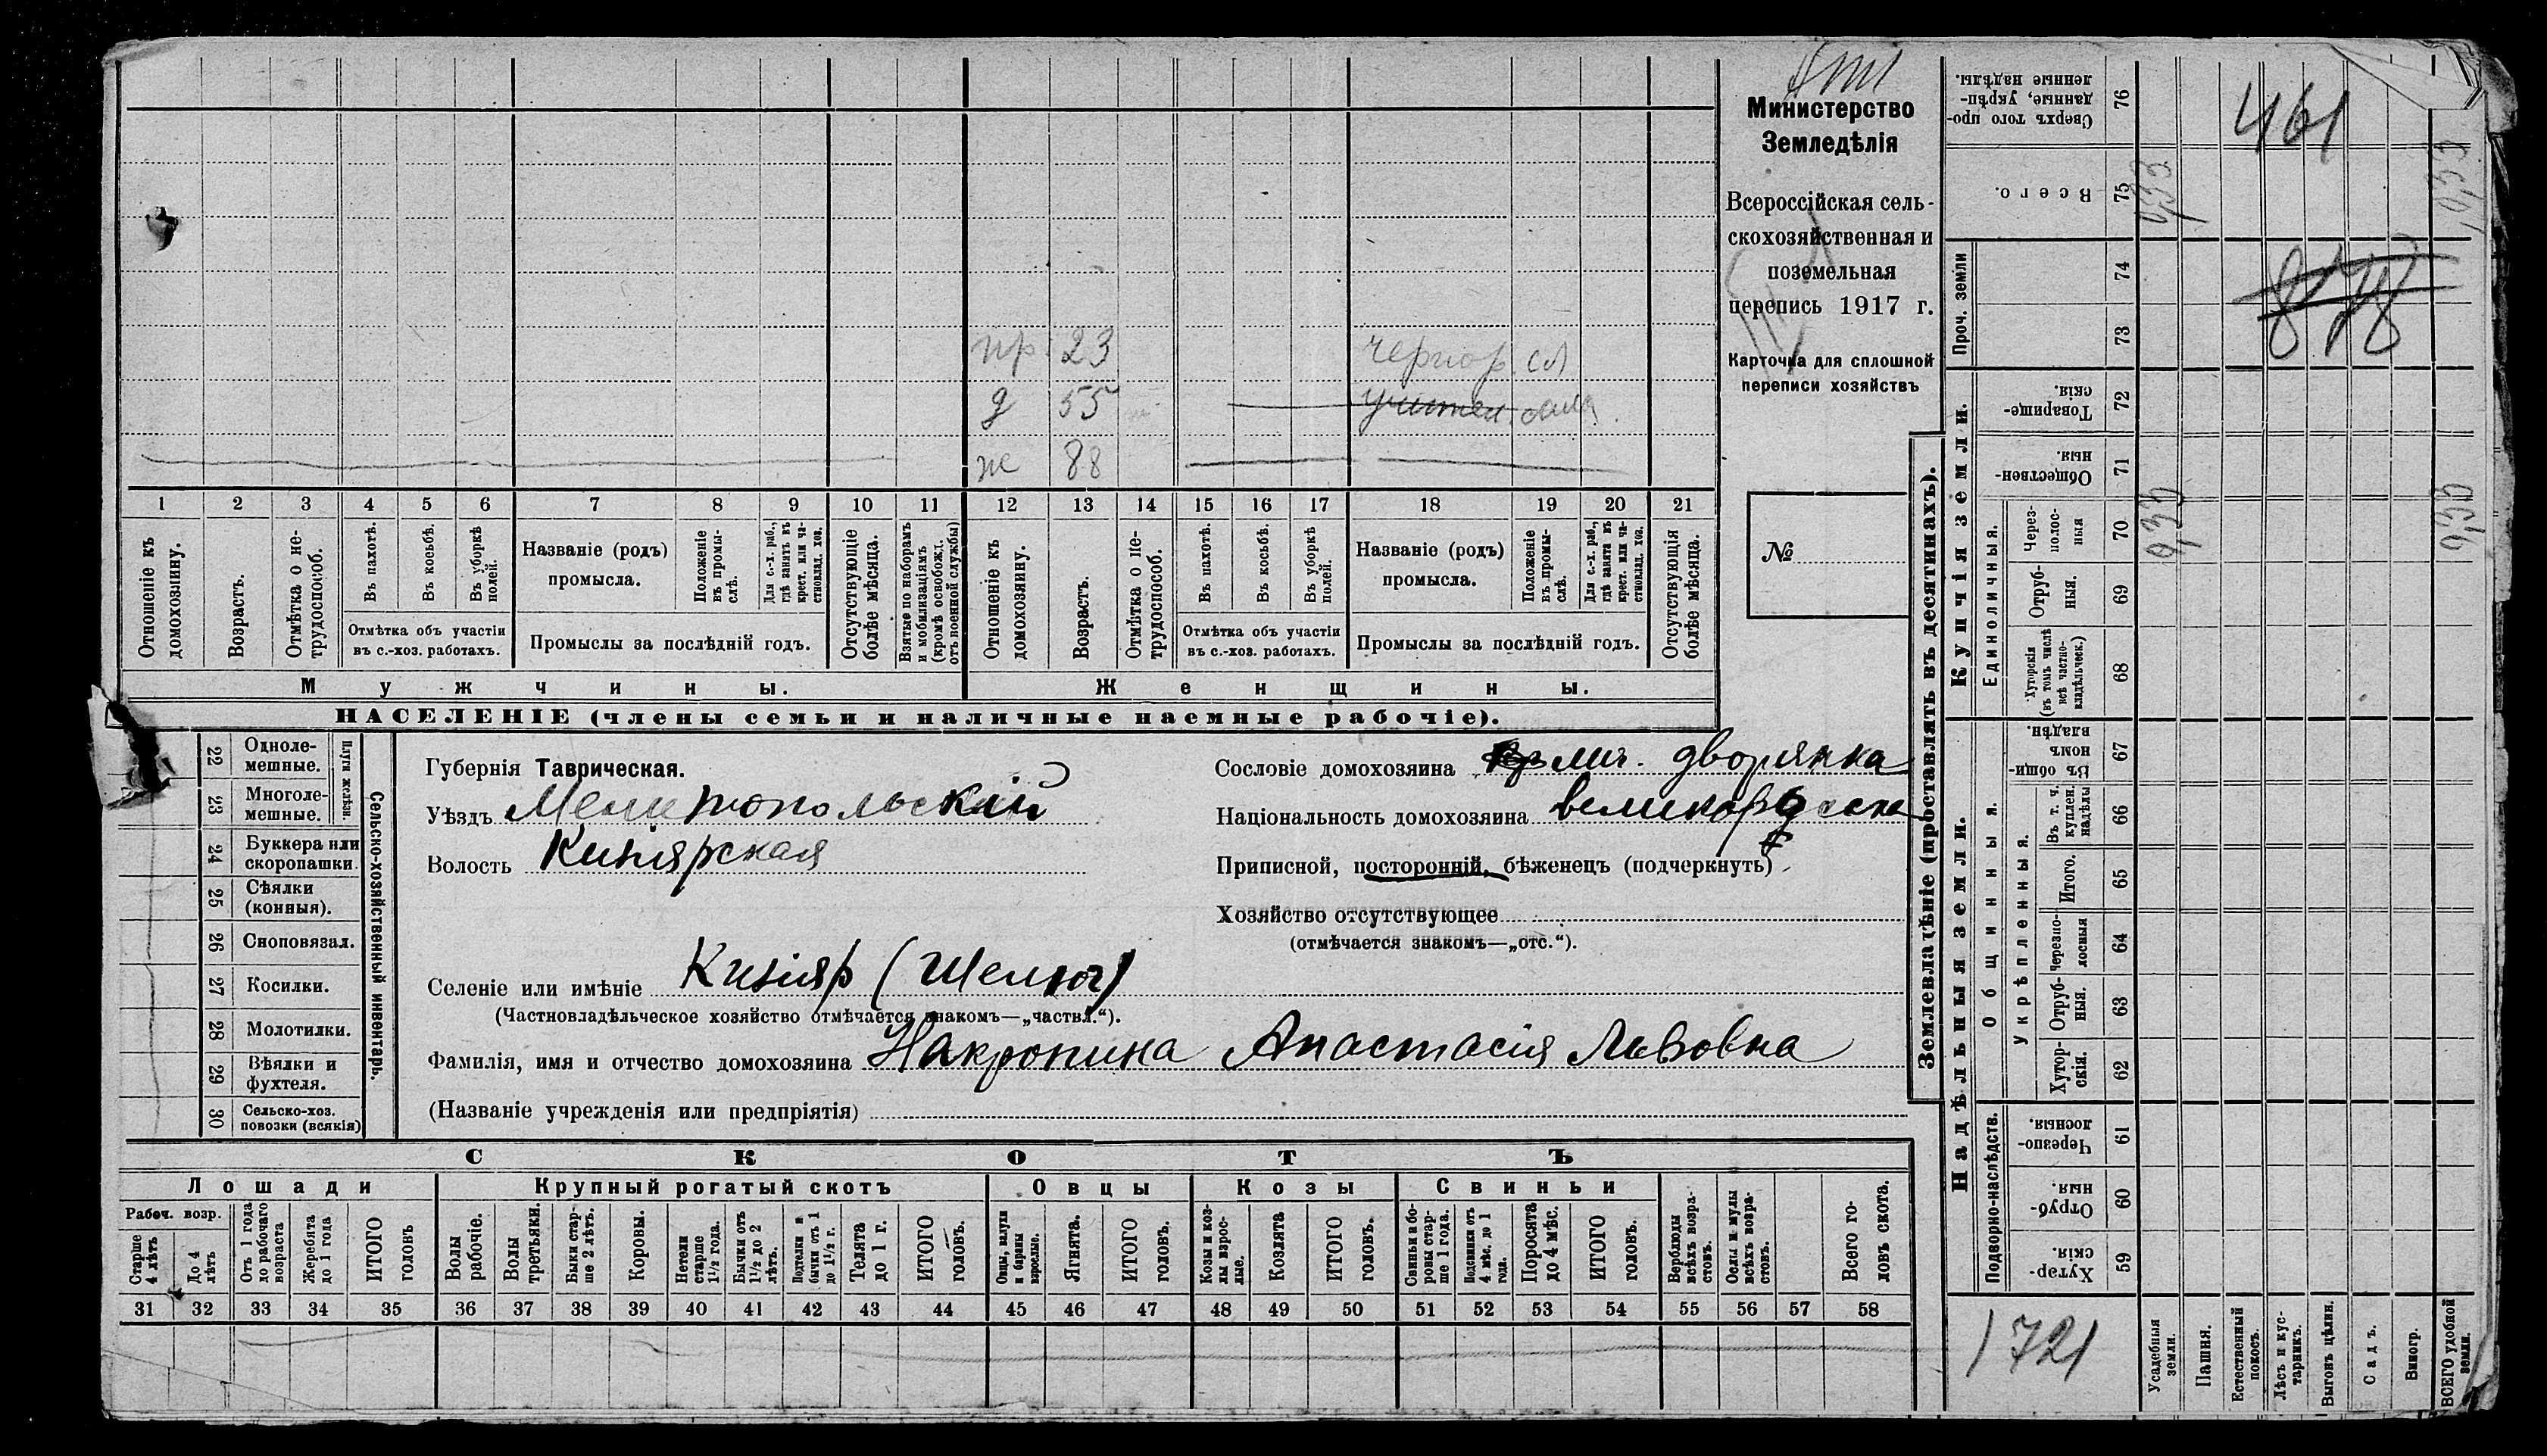 Министерство
Земледѣлія
Всероссійская сель-
скохозяйственная и
поземельная
перепись 1917 г.
Карточка для сплошной
переписи хозяйствъ
№
пр. 23 черпор. сл
д 55 учител. сама
ж 88
1 2 3 4 5 6 7 8 9 10 11 12 13 14 15 16 17 18 19 20 21
Отношеніе къ домохозяину.
Возрастъ.
Отмѣтка о не-трудоспособ.
Въ пахотѣ.
Въ косьбѣ.
Въ уборкѣ полей.
Отмѣтка объ участіи
въ с.-хоз. работахъ.
Названіе (родъ)
промысла.
Положеніе въ промы-слѣ.
Для с.-х. раб., гдѣ занятъ въ крест. или ча-стновлад. хоз.
Промыслы за послѣдній годъ.
Отсутствующіе болѣе мѣсяца.
Взятые по наборамъ и мобилизаціямъ (кромѣ освобожд. отъ военной службы)
Отношеніе къ домохозяину.
Возрастъ.
Отмѣтка о не-трудоспособ.
Въ пахотѣ.
Въ косьбѣ.
Въ уборкѣ полей.
Отмѣтка объ участіи
въ с.-хоз. работахъ.
Названіе (родъ)
промысла.
Положеніе въ промы-слѣ.
Для с.-х. раб., гдѣ занята въ крест. или ча-стновлад. хоз.
Промыслы за послѣдній годъ.
Отсутствующія болѣе мѣсяца.
Мужчины. Женщины.
НАСЕЛЕНІЕ (члены семьи и наличные наемные рабочіе).
22 Одноле-мешные.
23 Многоле-мешные.
Плуги желѣзн.
24 Буккера или скоропашки.
25 Сѣялки (конныя).
26 Сноповязал.
27 Косилки.
28 Молотилки.
29 Вѣялки и фухтеля.
30 Сельско-хоз. повозки (всякія)
Сельско-хозяйственный инвентарь.
Губернія Таврическая.
Уѣздъ Мелитопольскій
Волость Кизіярская
Сословіе домохозяина лич. дворянка
Національность домохозяина великорусска
Приписной, посторонній, бѣженецъ (подчеркнуть)
Хозяйство отсутствующее
(отмѣчается знакомъ—„отс.“).
Селеніе или имѣніе Кизіяр (Шелюг)
(Частновладѣльческое хозяйство отмѣчается знакомъ—„частвл.“).
Фамилія, имя и отчество домохозяина Накропина Анастасія Львовна
(Названіе учрежденія или предпріятія)
СКОТЪ
Лошади Крупный рогатый скотъ Овцы Козы Свиньи
Рабоч. возр.
Старше 4 лѣтъ
До 4 лѣтъ
Отъ 1 года до рабочаго возраста
Жеребята до 1 года
ИТОГО головъ
Волы рабочіе.
Волы третьяки.
Быки стар-ше 2 лѣтъ.
Коровы.
Нетели старше 1½ года.
Бычки отъ 1½ до 2 лѣтъ.
Подтелки и бычки отъ 1 до 1½ г.
Телята до 1 г.
ИТОГО головъ.
Овцы, валухи и бараны взрослые.
Ягнята.
ИТОГО головъ.
Козы и коз-лы взрос-лые.
Козлята
ИТОГО головъ.
Свиньи и бо-ровы стар-ше 1 года.
Подсвинки отъ 4 мѣс. до 1 года.
Поросята до 4 мѣс.
ИТОГО головъ.
Верблюды всѣхъ возра-стовъ.
Ослы и мулы всѣхъ возра-стовъ.
Всего го-ловъ скота.
31 32 33 34 35 36 37 38 39 40 41 42 43 44 45 46 47 48 49 50 51 52 53 54 55 56 57 58
Землевладѣніе (проставлять въ десятинахъ).
Надѣльныя земли.
Купчія земли.
Проч. земли
Сверхъ того про-данные, укрѣп-ленные надѣлы. 76
Всего. 75
74
73
Товарище-скія. 72
Обществен-ныя. 71
Единоличныя.
Через-полос-ныя 70
Отруб-ныя. 69
Хуторскія (въ томъ числѣ всѣ частно-владѣльческ.) 68
Общинныя.
Въ общи-номъ владѣн. 67
Укрѣпленныя.
Въ т. ч. куплен. надѣлы 66
Итого. 65
Черезпо-лосныя 64
Отруб-ныя. 63
Хутор-скія. 62
Подворно-наслѣдств.
Черезпо-лосныя. 61
Отруб-ныя. 60
Хутор-скія. 59
461
878
0,33
0,33
0,33
0,33
1721
Усадебныя земли.
Пашня.
Естественный покосъ.
Лѣсъ и кус-тарникъ.
Выгонъ цѣлин.
Садъ.
Виногр.
ВСЕГО удобной земли.